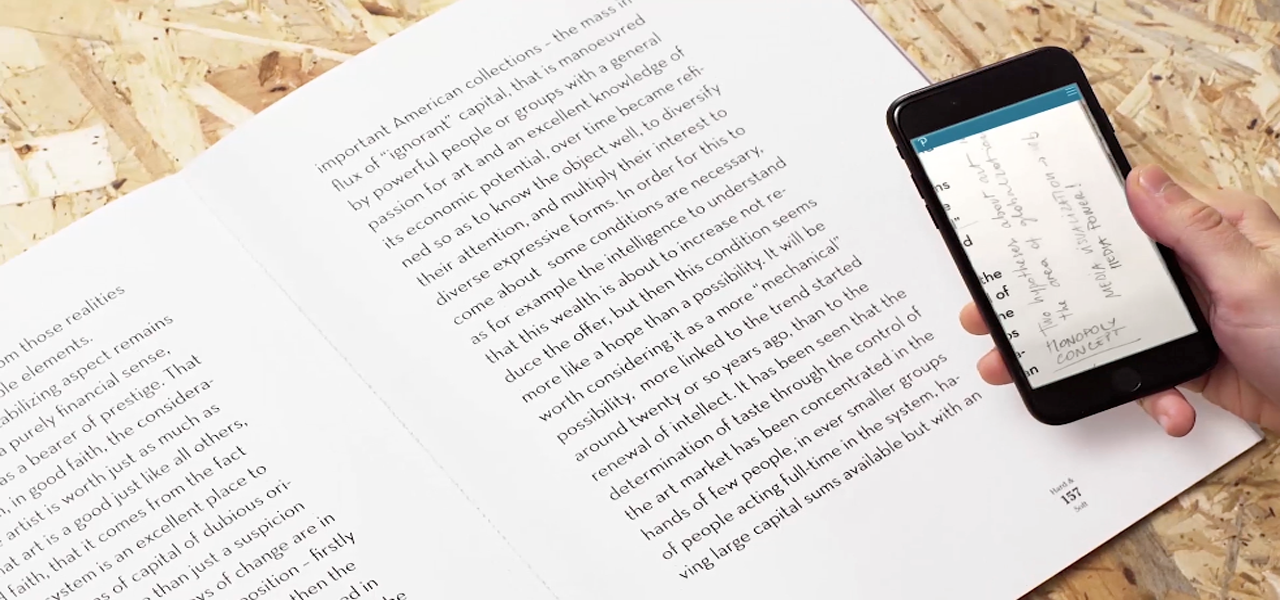 those realities
elements.
aspect remains
a purely financial sense,
as a bearer of prestige. That
in good faith, the considera-
artist is worth just as much as
art is a good just like all others,
faith, that it comes from the fact
system is an excellent place to
of capital of dubious ori-
than just a suspicion
of change are in
– firstly
then the
in
important American collections – the mass in
flux of “ignorant” capital, that is manoeuvred
by powerful people or groups with a general
passion for art and an excellent knowledge of
its economic potential, over time became refi-
ned so as to know the object well, to diversify
their attention, and multiply their interest to
diverse expressive forms. In order for this to
come about some conditions are necessary,
as for example the intelligence to understand
that this wealth is about to increase not re-
duce the offer, but then this condition seems
more like a hope than a possibility. It will be
worth considering it as a more “mechanical”
possibility, more linked to the trend started
around twenty or so years ago, than to the
renewal of intellect. It has been seen that the
determination of taste through the control of
the art market has been concentrated in the
hands of few people, in ever smaller groups
of people acting full-time in the system, ha-
ving large capital sums available but with an
Hard &
157
Soft
the
of
Two hypotheses about art in
the area of globalization
MEDIA VISUALIZATION
MEDIA POWER!
MONOPOLY
CONCEPT